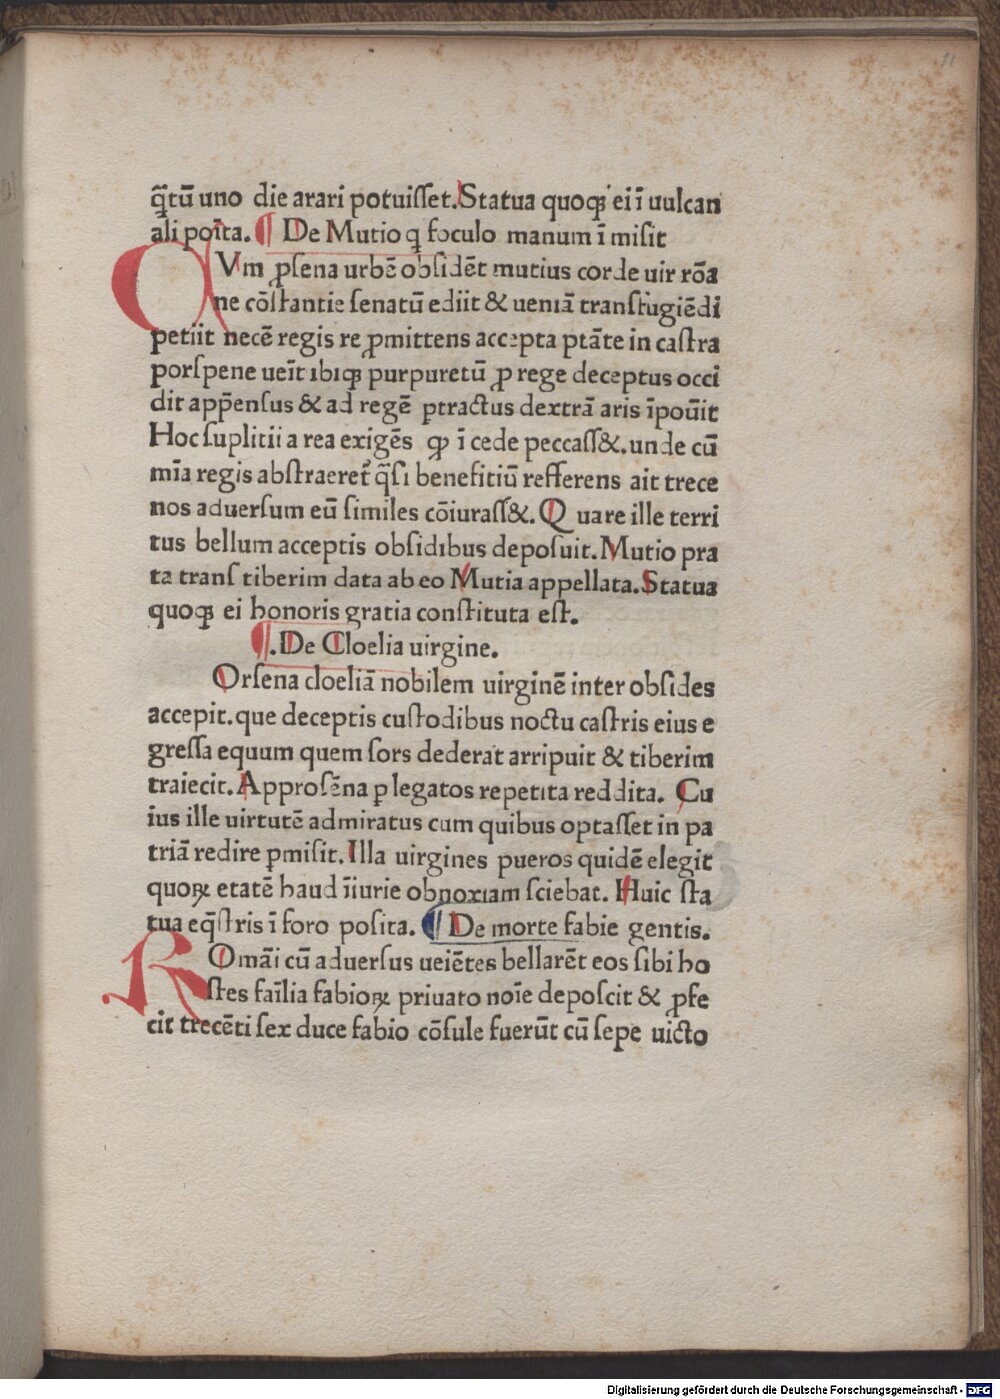 11
q̄tū uno die arari potuiſſet. Statua quoqꝫ ei ī uulcan
ali poīta. ¶ De Mutio q̨ foculo manum ī miſit
CVm ꝓſena urbē obſidēt mutius corde uir rōa
ne cōſtantie ſenatū ediit & ueniā tranſfugiēdi
petiit necē regis re ꝓmittens accepta ptāte in caſtra
porſpene ueīt ibiqꝫ purpuretū ꝓ rege deceptus occi
dit app̄enſus & ad regē ptractus dextrā aris īpoūit
Hoc ſuplitii a rea exigēs ꝙ ī cede peccaſſ&. unde cū
mīa regis abſtraereť q̄ſi benefitiū refferens ait trece
nos aduerſum eū ſimiles cōiuraſſ&. Quare ille terri
tus bellum acceptis obſidibus depoſuit. Mutio pra
ta tranſ tiberim data ab eo Mutia appellata. Statua
quoqꝫ ei honoris gratia conſtituta eſt.
¶. De Cloelia uirgine.
Orſena cloeliā nobilem uirginē inter obſides
accepit. que deceptis cuſtodibus noctu caſtris eius e
greſſa equum quem ſors dederat arripuit & tiberim
traiecit. Approſēna ꝑ legatos repetita reddita. Cu
ius ille uirtutē admiratus cum quibus optaſſet in pa
triā redire ꝑmiſit. Illa uirgines pueros quidē elegit
quoꝝ etatē haud īiurie obnoxiam ſciebat. Huic ſta
tua eq̄ſtris ī foro poſita. ¶ De morte fabie gentis.
ROmāi cū aduerſus ueiētes bellarēt eos ſibi ho
ſtes faīlia fabioꝝ priuato noīe depoſcit & ꝓfe
cit trecēti ſex duce fabio cōſule fuerūt cū ſepe uicto
Digitalisierung gefördert durch die Deutsche Forschungsgemeinschaft - DFG